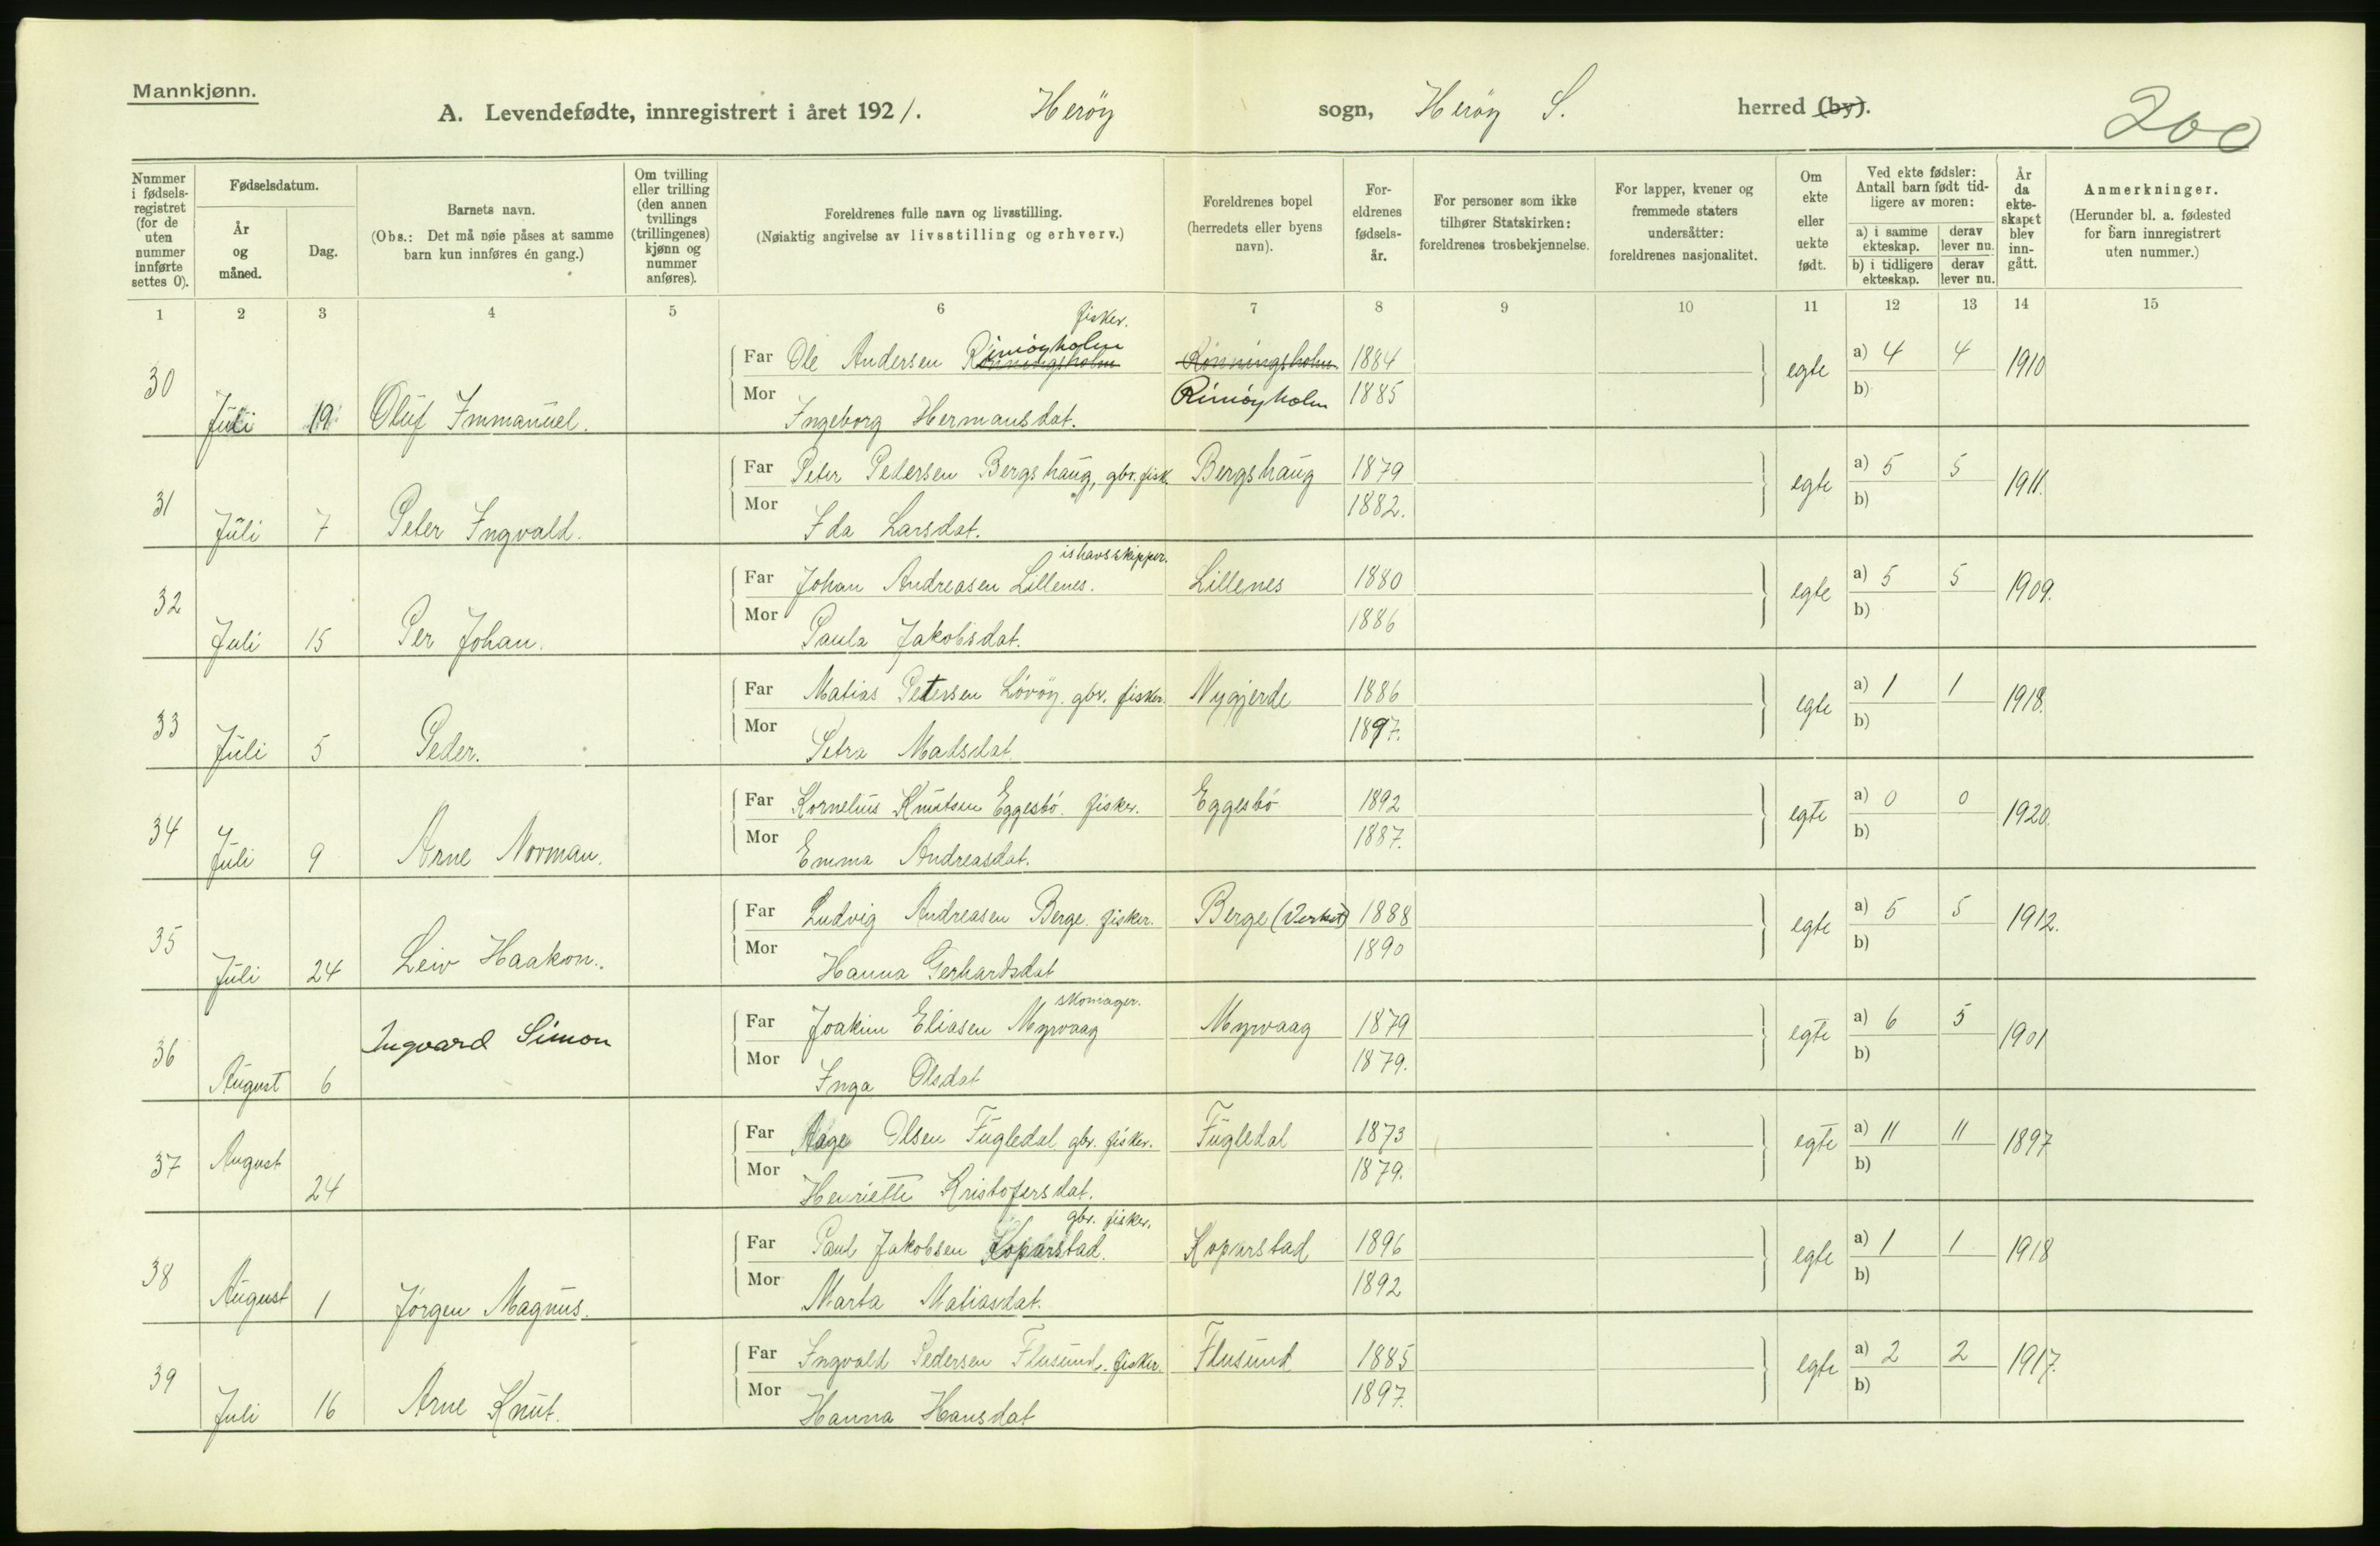 Mannkjønn.
A. Levendefødte, innregistrert i året 1921. Heröy sogn, Heröy S. herred (by).
200
Nummer i fødselsregistret (for de uten nummer innførte settes 0).
Fødselsdatum.
År og måned.
Dag.
Barnets navn.
(Obs.: Det må nøie påses at samme barn kun innføres én gang.)
Om tvilling eller trilling (den annen tvillings (trillingenes) kjønn og nummer anføres).
Foreldrenes fulle navn og livsstilling.
(Nøiaktig angivelse av livsstilling og erhverv.)
Foreldrenes bopel (herredets eller byens navn).
Foreldrenes fødselsår.
For personer som ikke tilhører Statskirken: foreldrenes trosbekjennelse.
For lapper, kvener og fremmede staters undersåtter: foreldrenes nasjonalitet.
Om ekte eller uekte født.
Ved ekte fødsler: Antall barn født tidligere av moren:
a) i samme ekteskap. derav lever nu.
b) i tidligere ekteskap. derav lever nu.
År da ekteskapet blev inngått.
Anmerkninger.
(Herunder bl. a. fødested for barn innregistrert uten nummer.)
1 2 3 4 5 6 7 8 9 10 11 12 13 14 15
fisker.
30 Juli 19 Oluf Immanuel. Far Ole Andersen Rimöyholm Rönningsholm 1884 egte a) 4 4 1910
Mor Ingeborg Hermansdat. Rimöyholm 1885 b)
31 Juli 7 Peter Ingvald. Far Peter Pedersen Bergshaug, gbr. fisk. Bergshaug 1879 egte a) 5 5 1911.
Mor Ida Larsdat. 1882. b)
ishavsskipper.
32 Juli 15 Per Johan. Far Johan Andreasen Lillenes. Lillenes 1880 egte a) 5 5 1909.
Mor Paula Jakobsdat. 1886 b)
33 Juli 5 Peder. Far Matias Petersen Lövöy. gbr. fisker. Nygjerde 1886 egte a) 1 1 1918.
Mor Petra Madsdat 1897. b)
34 Juli 9 Arne Norman. Far Kornelius Knutsen Eggesbö. fisker. Eggesbö 1892 egte a) 0 0 1920.
Mor Emma Andreasdat. 1887. b)
35 Juli 24 Leiv Haakon. Far Ludvig Andreasen Berge. fisker. Berge 1888 egte a) 5 5 1912.
Mor Hanna Gerhardsdat 1890 b)
skomager.
36 August 6 Ingvard Simon Far Joakim Eliasen Myrvaag Myrvaag 1879 egte a) 6 5 1901
Mor Inga Olsdat 1879. b)
37 August 24 Far Aage Olsen Fugledal gbr. fisker. Fugledal 1873 egte a) 11 11 1897
Mor Henriette Kristofersdat. 1879. b)
gbr. fisker.
38 August 1 Jörgen Magnus. Far Paul Jakobsen Koparstad. Koparstad 1896 egte a) 1 1 1918
Mor Marta Matiasdat. 1892 b)
39 Juli 16 Arne Knut. Far Ingvald Pedersen Flusund. fisker. Flusund 1885 egte a) 2 2 1917.
Mor Hanna Hansdat 1897. b)